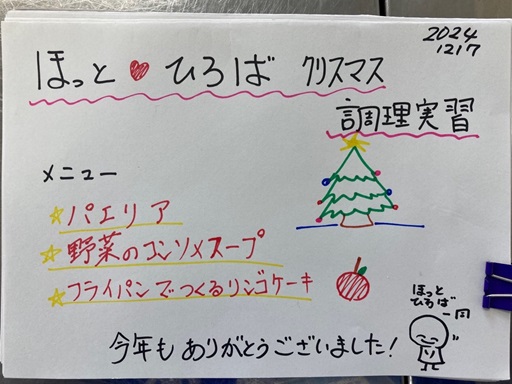 2024
1217
ほっと♥ひろば クリスマス
調理実習
メニュー
☆パエリア
☆野菜のコンソメスープ
☆フライパンでつくるリンゴケーキ
ほっと
ひろば
一同
今年も ありがとうございました!